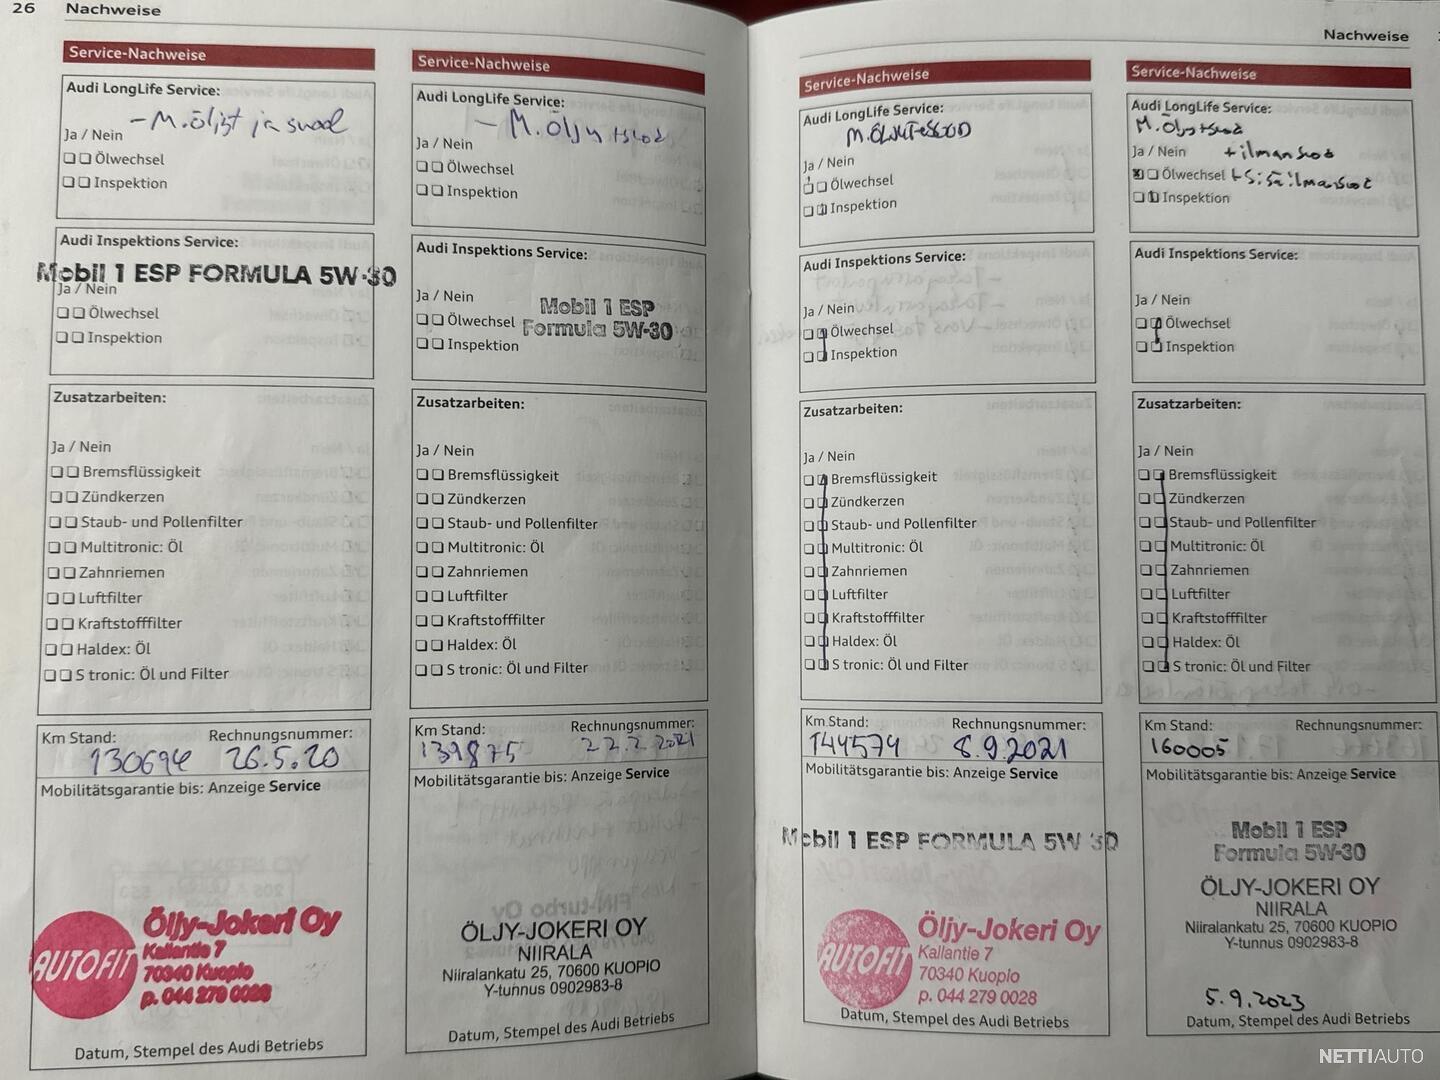 26 Nachweise
Service-Nachweise
Audi LongLife Service:
Ja / Nein - M.öljyt ja suod
Ölwechsel
Inspektion
Audi Inspektions Service:
Mobil 1 ESP FORMULA 5W-30
Ja / Nein
Ölwechsel
Inspektion
Zusatzarbeiten:
Ja / Nein
Bremsflüssigkeit
Zündkerzen
Staub- und Pollenfilter
Multitronic: Öl
Zahnriemen
Luftfilter
Kraftstofffilter
Haldex: Öl
S tronic: Öl und Filter
Km Stand: Rechnungsnummer:
130694 26.5.20
Mobilitätsgarantie bis: Anzeige Service
AUTOFIT
Öljy-Jokeri Oy
Kallantie 7
70340 Kuopio
p. 044 279 0028
Datum, Stempel des Audi Betriebs
Service-Nachweise
Audi LongLife Service:
- M.Öljy + suod
Ja / Nein
Ölwechsel
Inspektion
Audi Inspektions Service:
Ja / Nein
Mobil 1 ESP
Formula 5W-30
Ölwechsel
Inspektion
Zusatzarbeiten:
Ja / Nein
Bremsflüssigkeit
Zündkerzen
Staub- und Pollenfilter
Multitronic: Öl
Zahnriemen
Luftfilter
Kraftstofffilter
Haldex: Öl
S tronic: Öl und Filter
Km Stand: Rechnungsnummer:
139875 22.2.2021
Mobilitätsgarantie bis: Anzeige Service
ÖLJY-JOKERI OY
NIIRALA
Niiralankatu 25, 70600 KUOPIO
Y-tunnus 0902983-8
Datum, Stempel des Audi Betriebs
Nachweise
Service-Nachweise
Audi LongLife Service:
Ja / Nein
Ölwechsel
Inspektion
Audi Inspektions Service:
Ja / Nein
Ölwechsel
Inspektion
Zusatzarbeiten:
Ja / Nein
Bremsflüssigkeit
Zündkerzen
Staub- und Pollenfilter
Multitronic: Öl
Zahnriemen
Luftfilter
Kraftstofffilter
Haldex: Öl
S tronic: Öl und Filter
Km Stand: Rechnungsnummer:
144574 8.9.2021
Mobilitätsgarantie bis: Anzeige Service
Mobil 1 ESP FORMULA 5W 30
AUTOFIT
Öljy-Jokeri Oy
Kallantie 7
70340 Kuopio
p. 044 279 0028
Datum, Stempel des Audi Betriebs
Service-Nachweise
Audi LongLife Service:
M.Öljy + suod
Ja / Nein + ilmansuod
Ölwechsel + Sisäilmansuod
Inspektion
Audi Inspektions Service:
Ja / Nein
Ölwechsel
Inspektion
Zusatzarbeiten:
Ja / Nein
Bremsflüssigkeit
Zündkerzen
Staub- und Pollenfilter
Multitronic: Öl
Zahnriemen
Luftfilter
Kraftstofffilter
Haldex: Öl
S tronic: Öl und Filter
Km Stand: Rechnungsnummer:
160005
Mobilitätsgarantie bis: Anzeige Service
Mobil 1 ESP
Formula 5W-30
ÖLJY-JOKERI OY
NIIRALA
Niiralankatu 25, 70600 KUOPIO
Y-tunnus 0902983-8
5.9.2023
Datum, Stempel des Audi Betriebs
NETTIAUTO